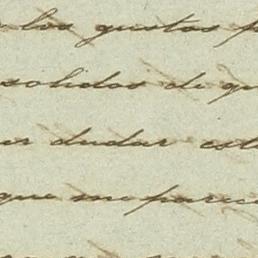 los gustos p
solidos de qu
er dudar est
que me parec